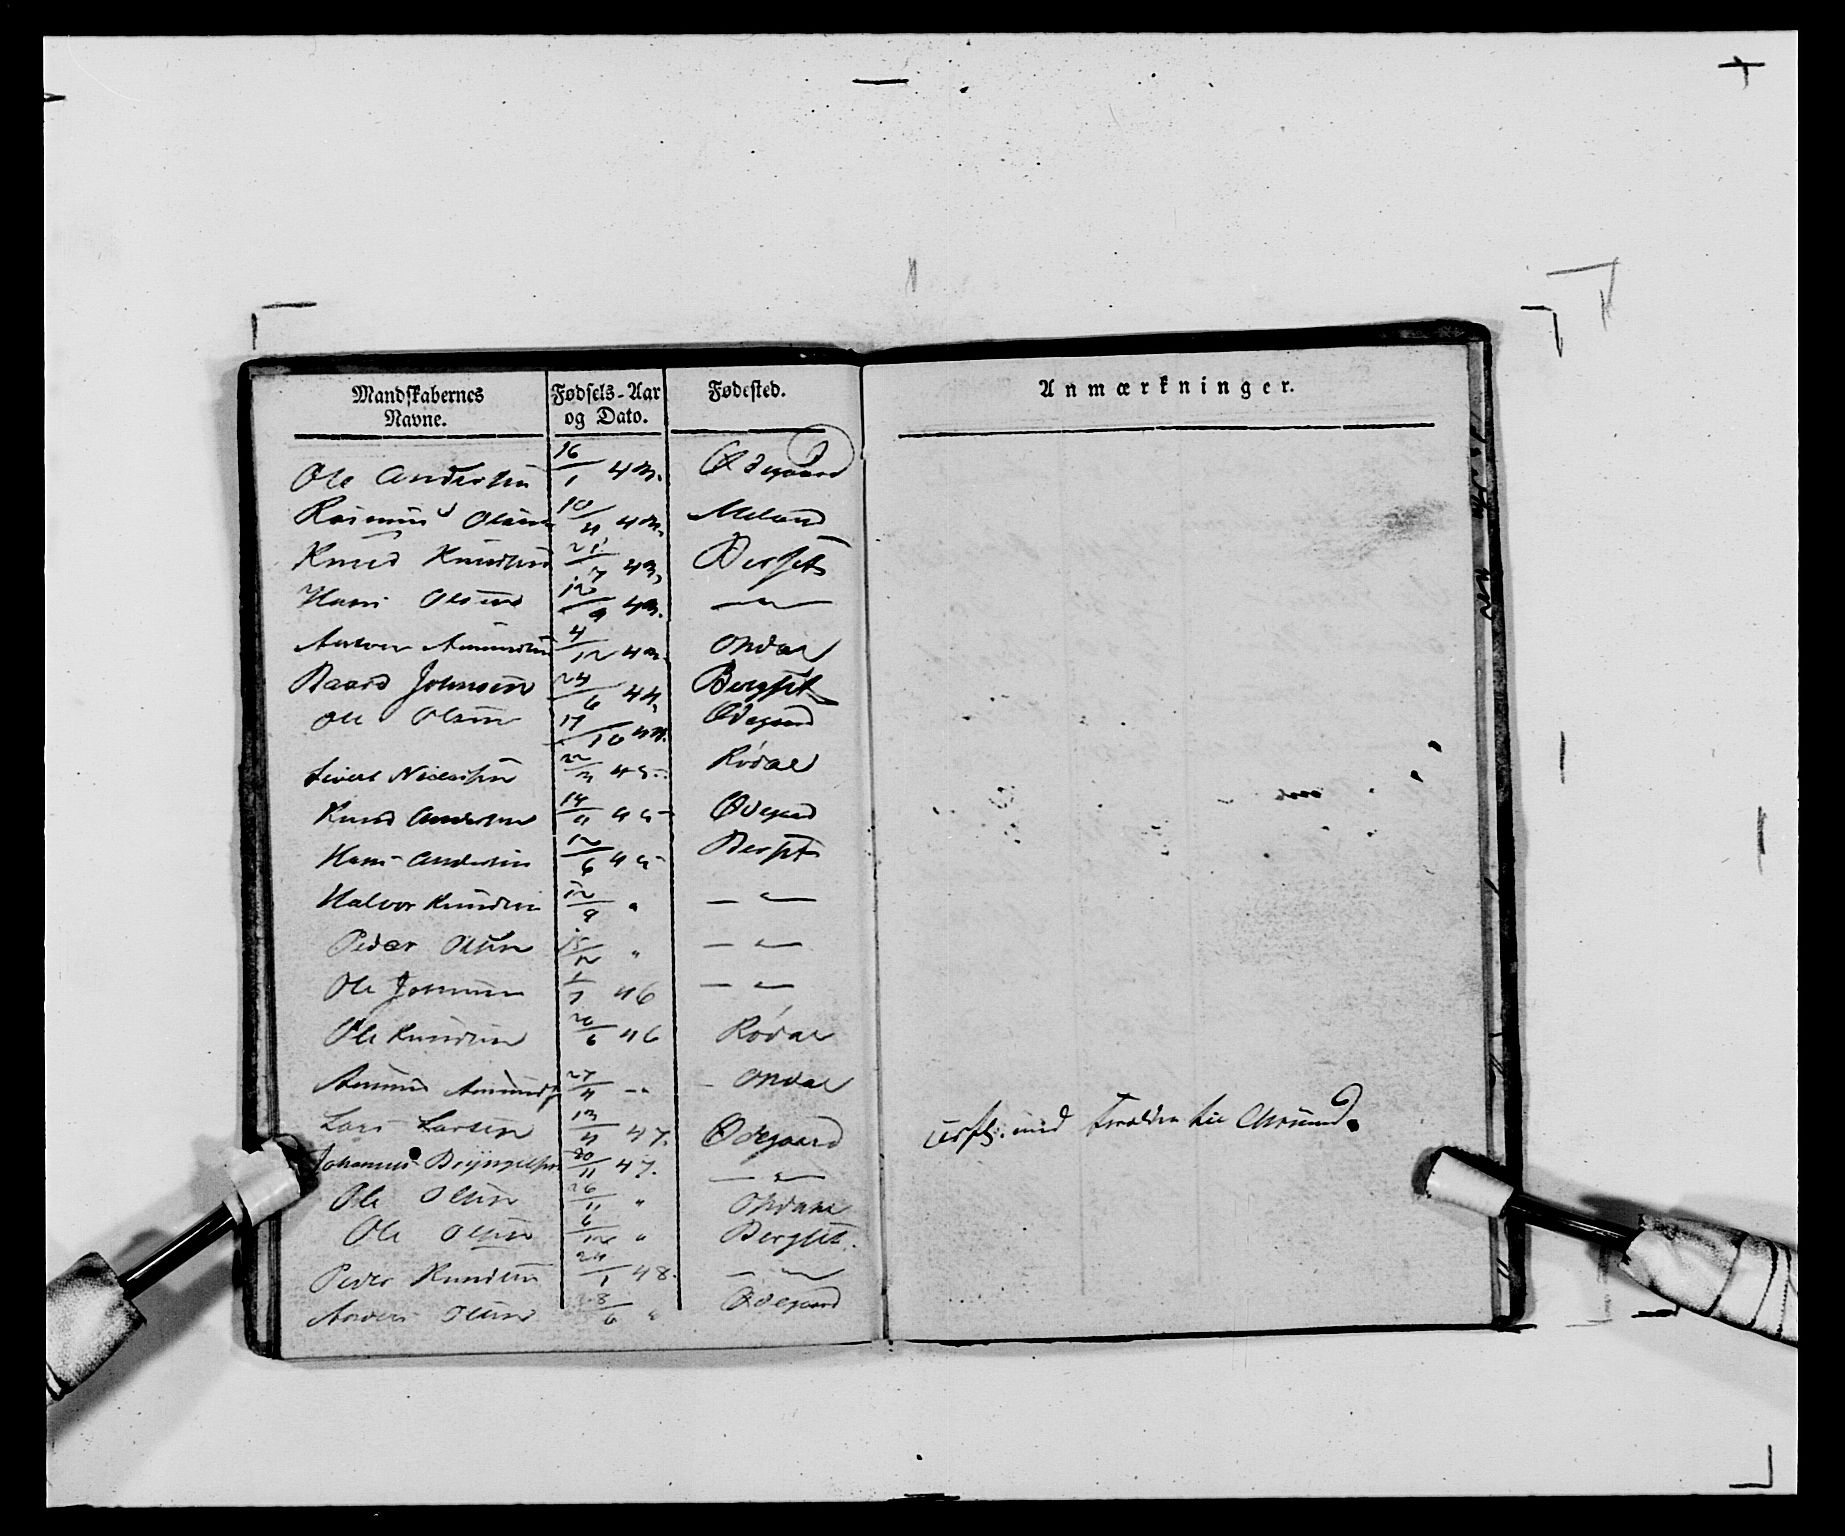 Mandskabernes Navne. Fødsels-Aar og Dato. Fødested. Anmærkninger.
Ole Andersen 16/1 43. Ødegaard
Rasmus Olsen 10/4 43. Meland
Knud Knudsen 21/7 43, Bergset
Hans Olsen 12/9 43. — " —
Anton Amundsen 4/12 43. Opdal
Baard Johnsen 24/6 44, Bergset
Ole Olsen 17/10 44. Ødegaard
Sivert Nielsen 22/3 45 Rødal
Knud Andersen 14/4 45 Ødegaard
Hans Andersen 12/6 45 Bergset
Halvor Knudsen 12/9 " — " —
Peder Olsen 15/12 " — " —
Ole Johnsen 1/1 46 — " —
Ole Knudsen 20/6 46 Rødal
Amund Amunds 27/4 — " Opdal
Lars Larsen 13/4 47. Ødegaard med Forældre til Aresund.
Johannes Bryngelsen 20/11 47. — " —
Ole Olsen 26/11 " Opdal
Ole Olsen 6/12 " Bergset.
Peder Knudsen 24/1 48. — " —
Anders Olsen 28/6 " Ødegaard